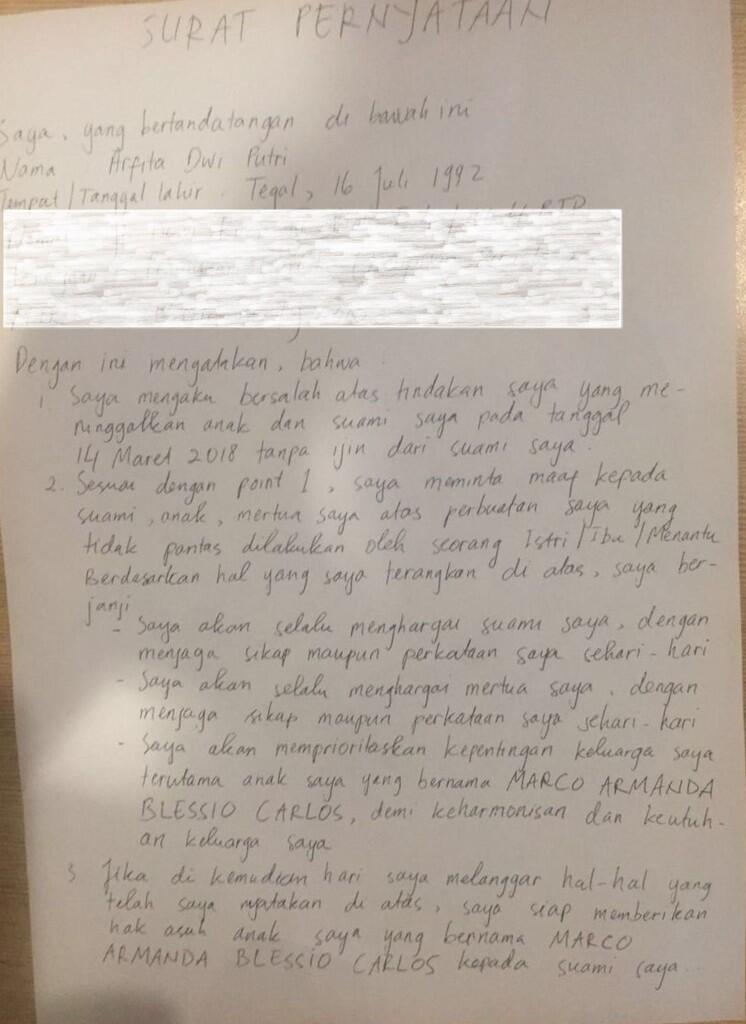 SURAT PERNYATAAN
Saya, yang bertandatangan di bawah ini
Nama Arfita Dwi Putri
Tempat/Tanggal lahir. Tegal, 16 Juli 1992
Dengan ini mengatakan, bahwa
1. Saya mengaku bersalah atas tindakan saya yang me-
ninggalkan anak dan suami saya pada tanggal
14 Maret 2018 tanpa ijin dari suami saya.
2. Sesuai dengan point 1, saya meminta maaf kepada
suami, anak, mertua saya atas perbuatan saya yang
tidak pantas dilakukan oleh seorang Istri/Ibu/Menantu
Berdasarkan hal yang saya terangkan di atas, saya ber-
janji
- Saya akan selalu menghargai suami saya, dengan
menjaga sikap maupun perkataan saya sehari-hari
- Saya akan selalu menghargai mertua saya, dengan
menjaga sikap maupun perkataan saya sehari-hari
- Saya akan memprioritaskan kepentingan keluarga saya
terutama anak saya yang bernama MARCO ARMANDA
BLESSIO CARLOS, demi keharmonisan dan keutuh-
an keluarga saya
3 Jika di kemudian hari saya melanggar hal-hal yang
telah saya nyatakan di atas, saya siap memberikan
hak asuh anak saya yang bernama MARCO
ARMANDA BLESSIO CARLOS kepada suami saya.